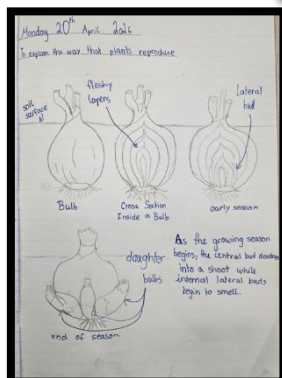 Monday 20th April 2026
To explain the way that plants reproduce
soil surface
fleshy layers
Lateral bud
Bulb
Cross Section Inside a Bulb
early season
daughter bulbs
As the growing season
begins, the central bud develops
into a shoot while
internal lateral buds
begin to smell.
end of season